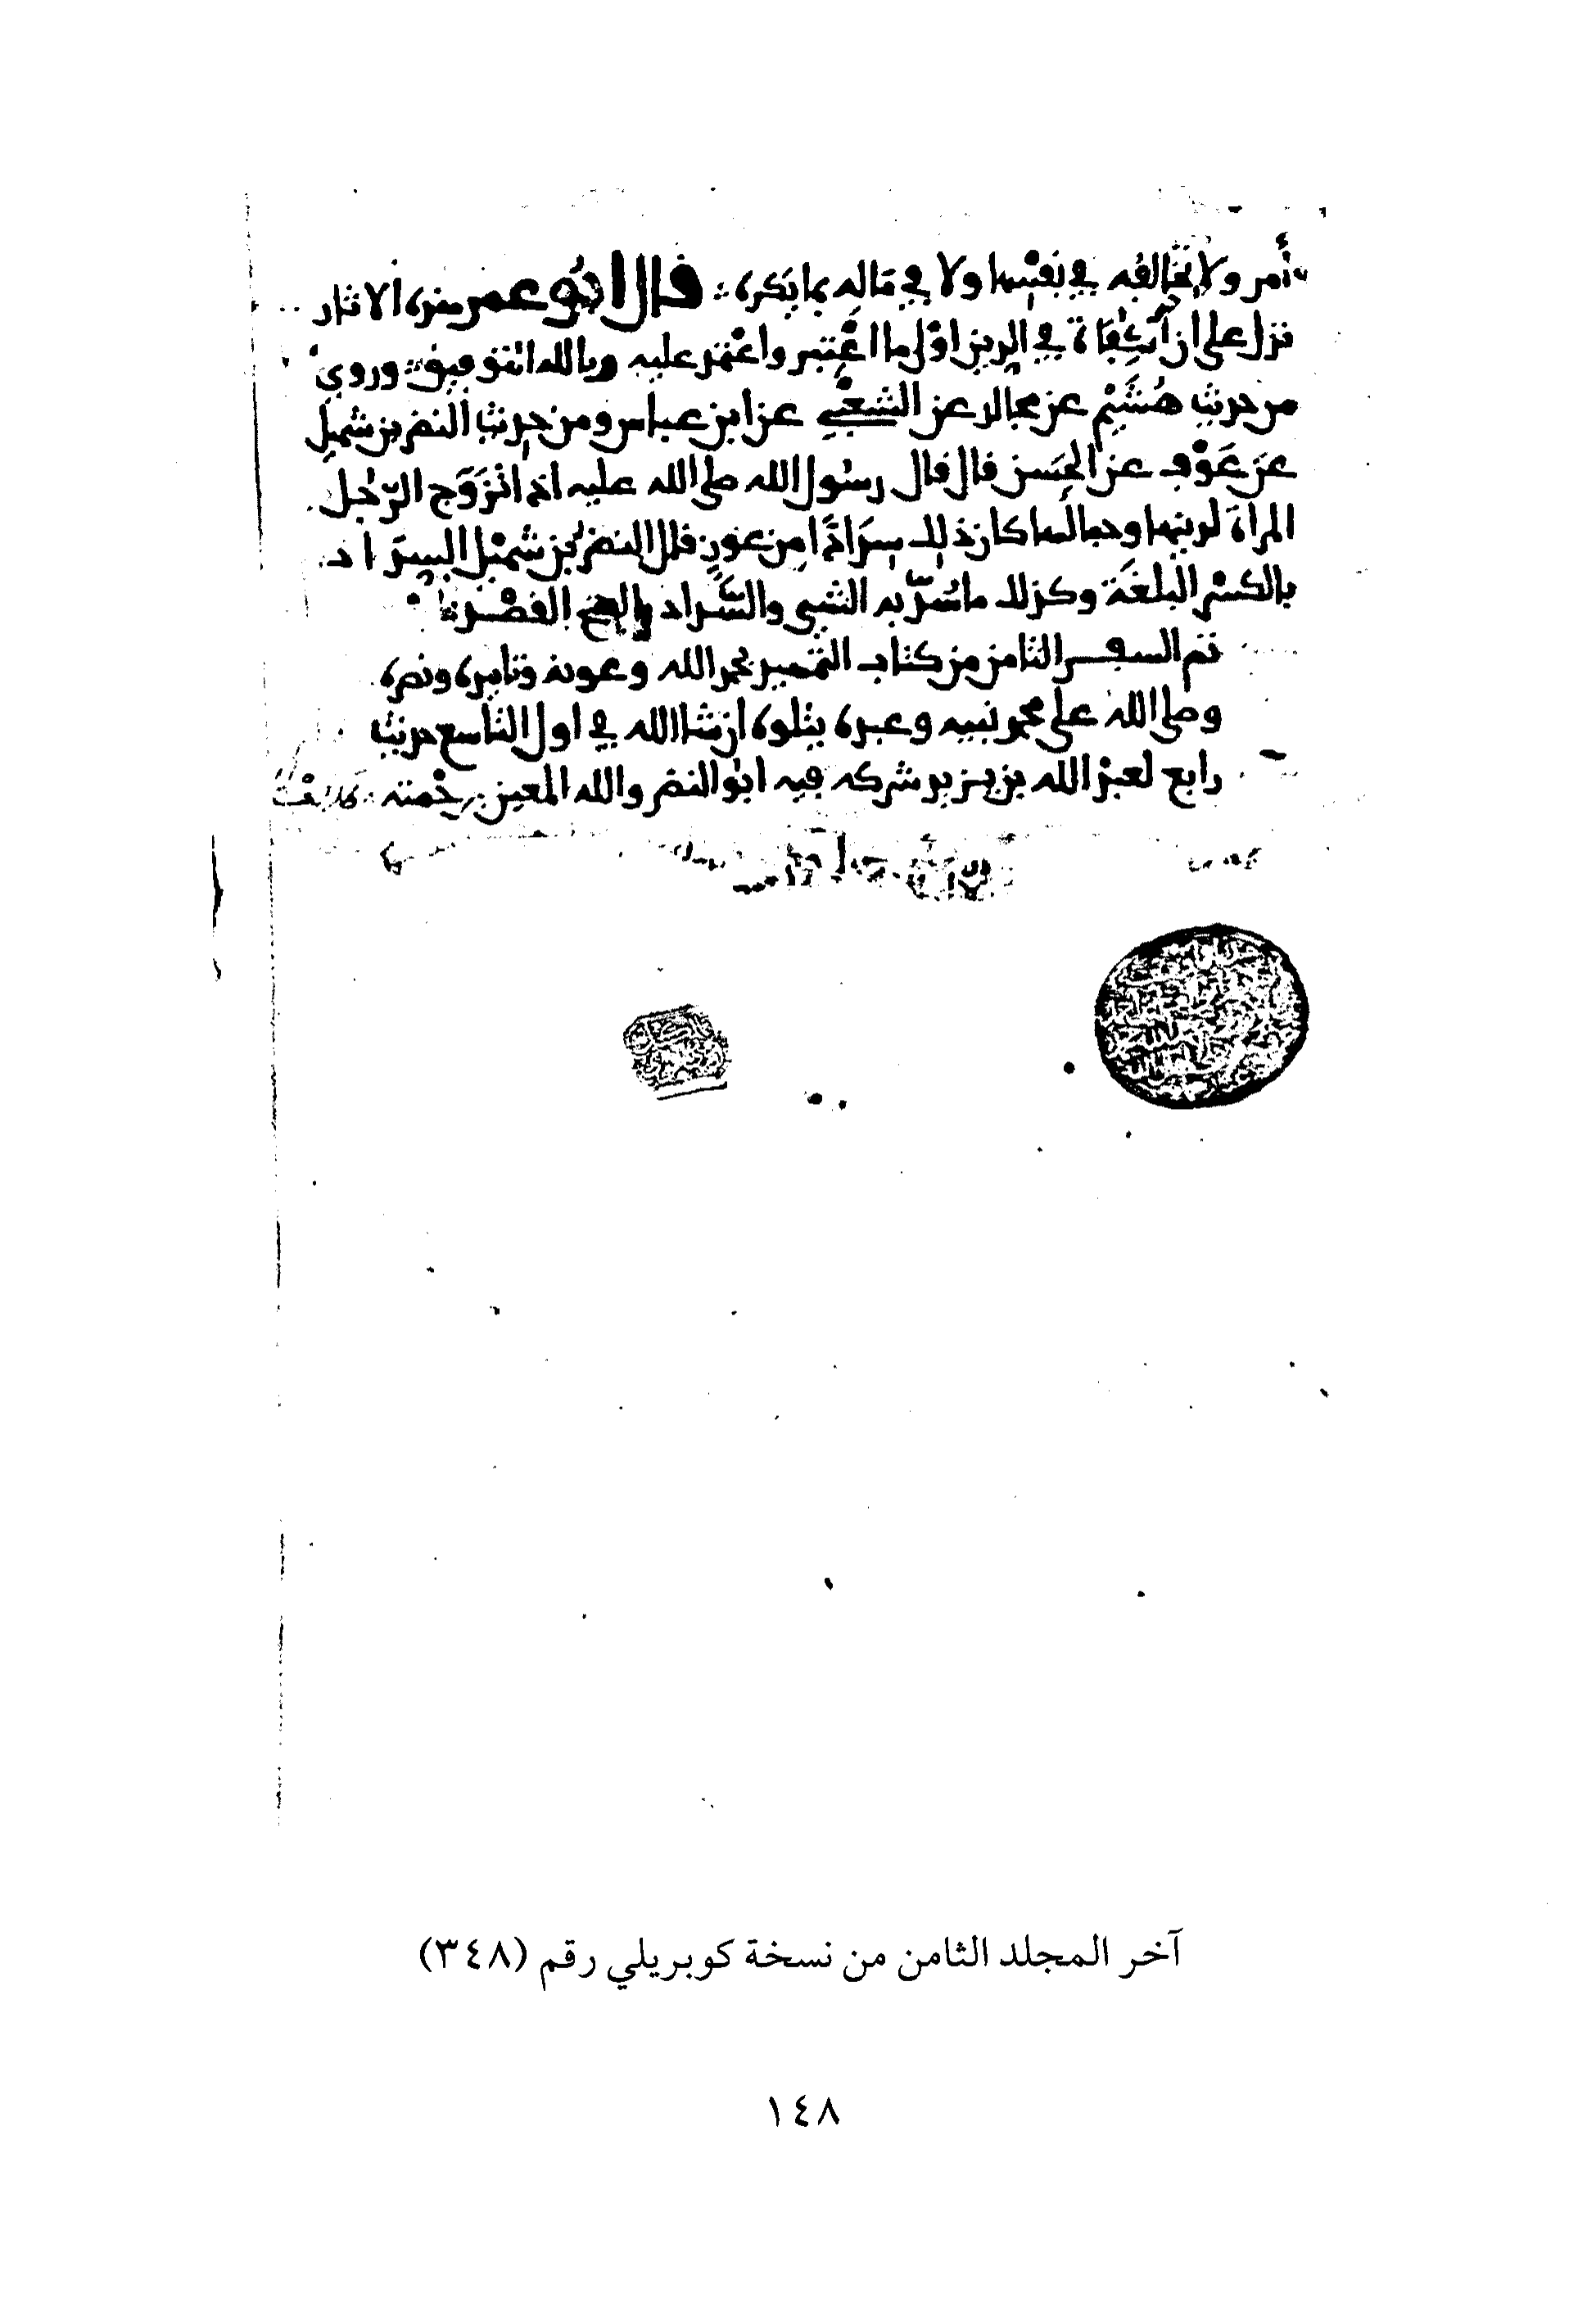 أمر ولا تخالفه في نفسها ولا في ماله بما يكره قال ابو عمر هذه الاثار
تدل على ان الكفاءة في الدين اولى ما اعتبر واعتمد عليه وبالله التوفيق وروي
من حديث هُشَيْم عن مجالد عن الشعبي عن ابن عباس ومن حديث النضر بن شميل
عن عَوْف عن الحسن قال قال رسول الله صلى الله عليه اذا تزَوَّج الرّجُل
المرأة لدينها وجمالها كان ذلك سِدَادًا من عوز قال النضر بن شميْل السِدَاد
بالكسر البلغة وكذلك ما سُدّ به الشي والسَّداد بالفتح القصْد
تم السفر الثامن من كتاب التمهيد بحمد الله وعونه وتاييده ونصره
وصلى الله على محمد نبيه وعبده يتلوه ان شا الله في اول التاسع حديث
رابع لعبد الله بن يزيد شركه فيه ابو النضر والله المعين برحمته
آخر المجلد الثامن من نسخة كوبريلي رقم (٣٤٨)
١٤٨